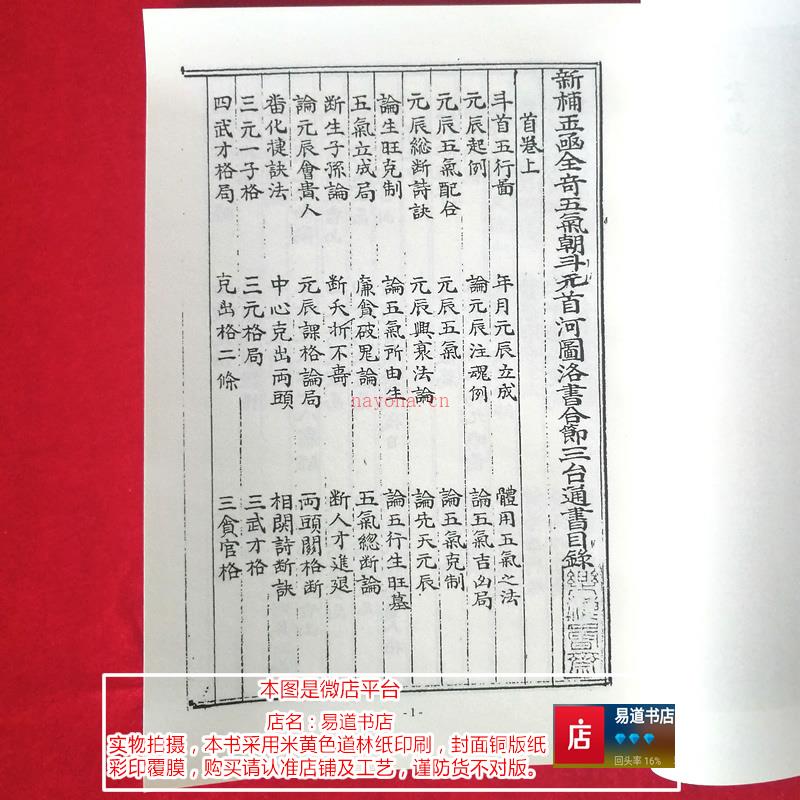 新楠玉函全奇五氣朝斗元首河圖洛書合節三台通書目錄
首卷上
斗首五行啚 年月元辰立成 體用五氣之法
元辰起例 論元辰注魂例 論五氣吉凶局
元辰五氣配合 元辰五氣 論五氣克制
元辰總断詩訣 元辰興衰法論 論先天元辰
論生旺克制 論五氣所由生 論五行生旺墓
五氣立成局 廉貪破鬼論 五氣總断論
断生子孫論 断夭折不壽 断人才進退
論元辰會貴人 元辰課格論局 両頭関格断
畨化揵訣法 中心克出両頭 相関詩断訣
三元一子格 三元格局 三武才格
四武才格局 克出格二條 三貪官格
- 1 -
nayona.cn
本图是微店平台
店名：易道书店
实物拍摄，本书采用米黄色道林纸印刷，封面铜版纸
彩印覆膜，购买请认准店铺及工艺，谨防货不对版。
店
易道书店
回头率 16%